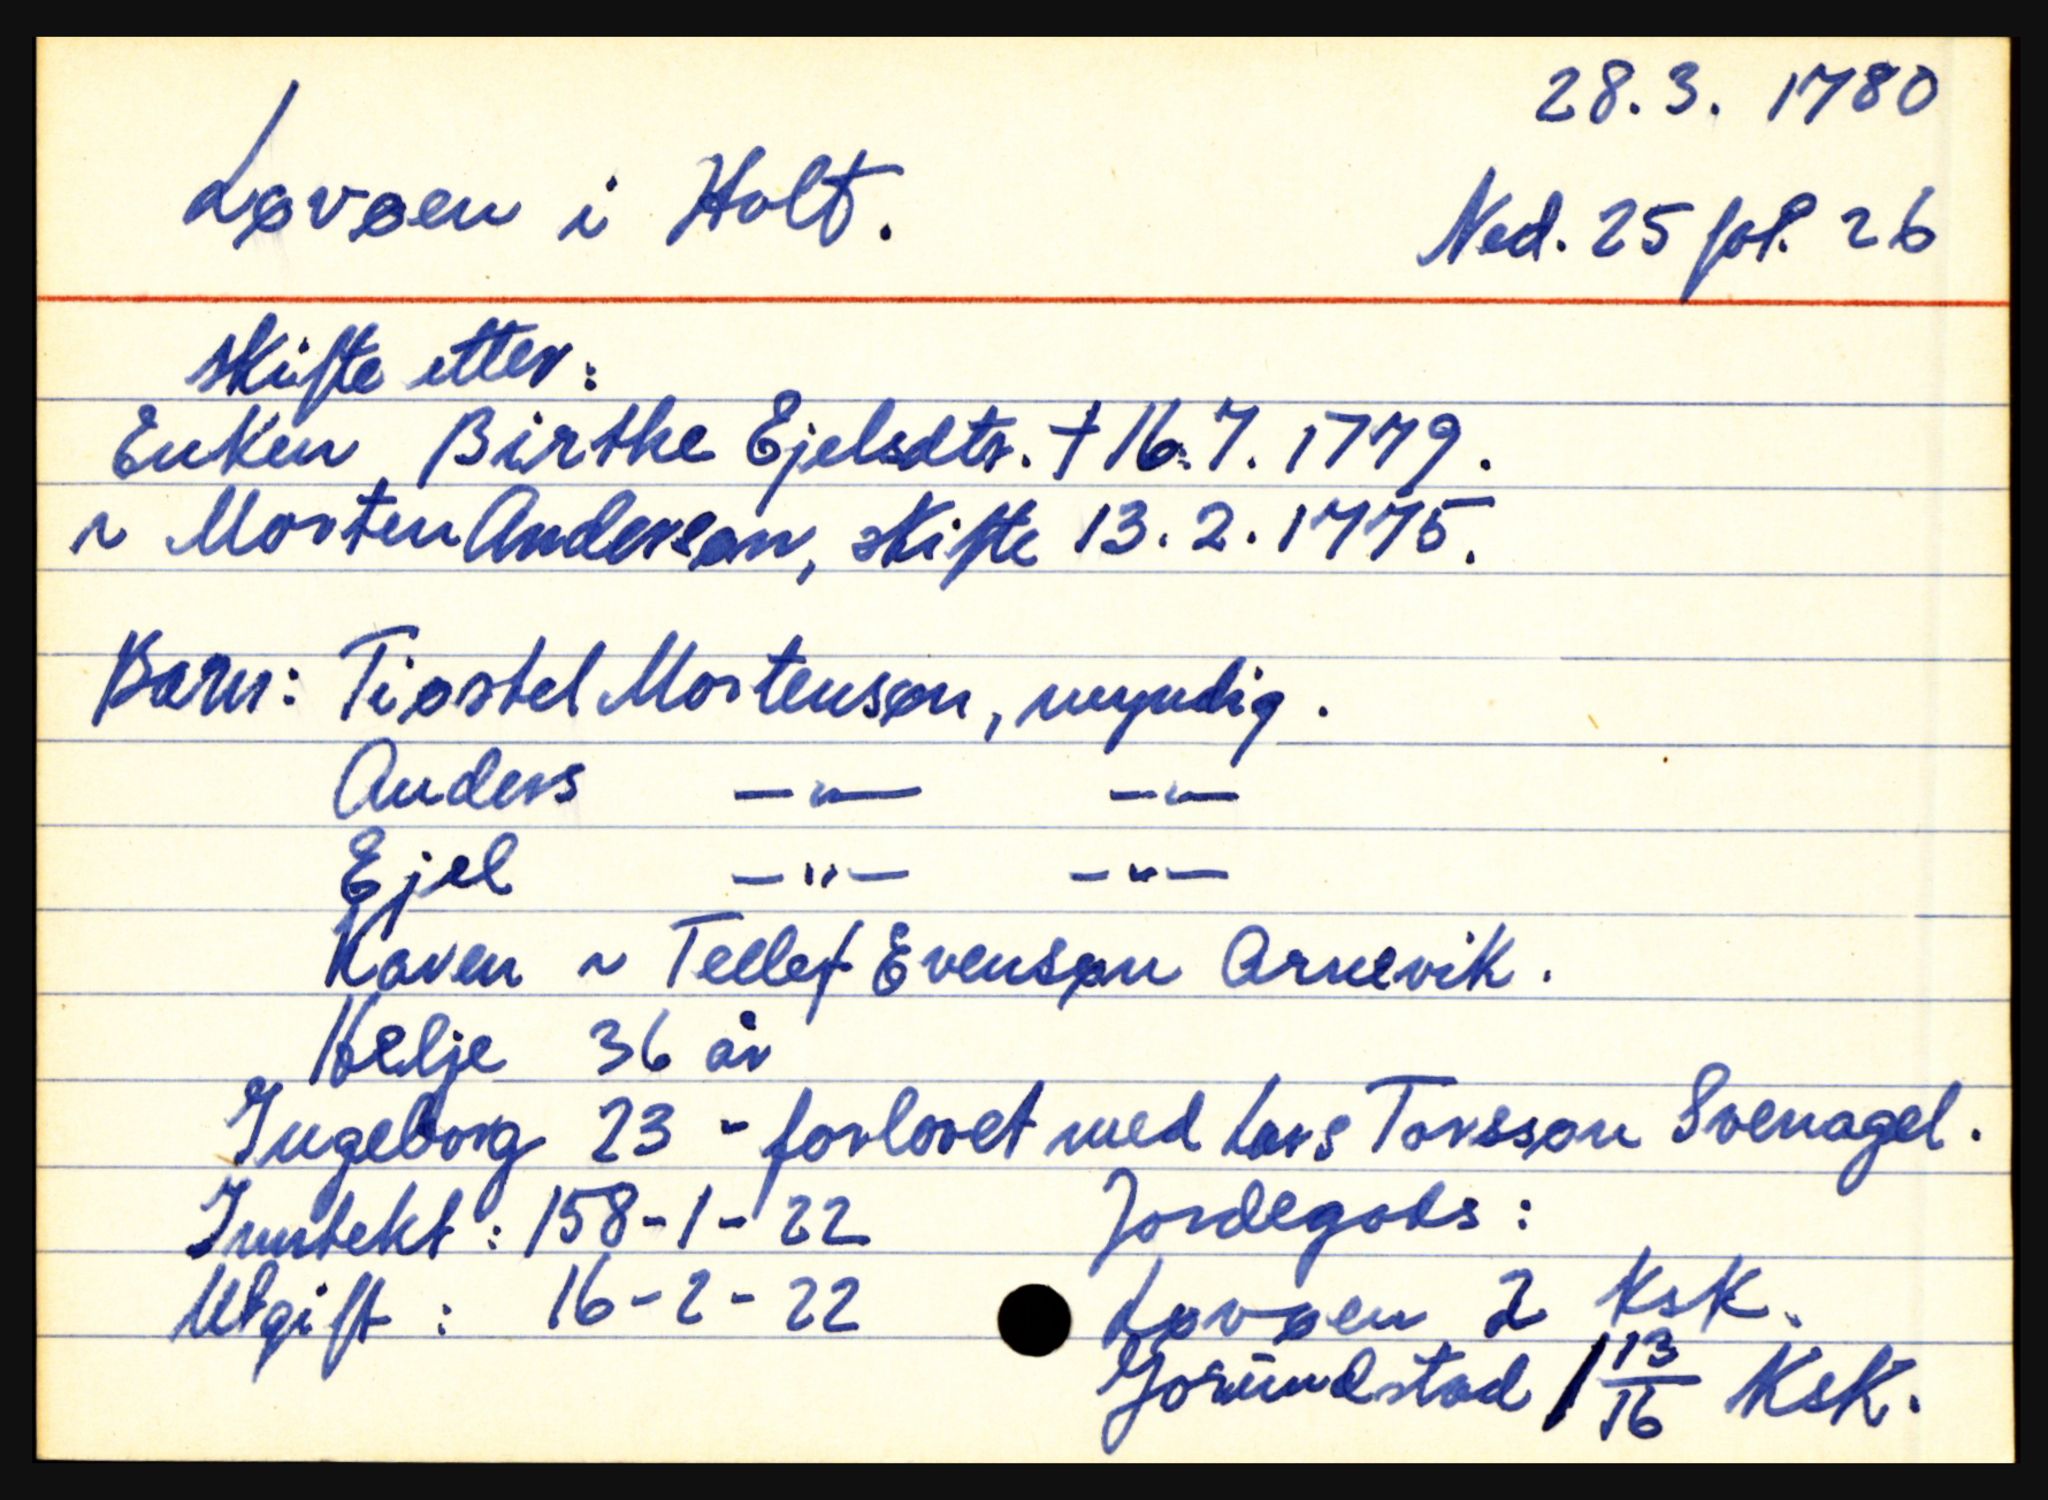 28.3. 1780
Løvøen i Holt.
Ned. 25 fol. 26
skifte etter:
Enken Birthe Ejelsdtr. † 16.7. 1779.
~ Morten Andersøn, skifte 13.2.1775.
Barn: Tiøstel Mortensøn, myndig.
Anders —"— —"—
Ejel —"— —"—
Karen ~ Tellef Evensøn Arnevik.
Helje 36 år
Ingeborg 23 - forlovet med Lars Torsson Svenagel.
Inntekt: 158-1-22 Jordegods:
Utgift: 16-2-22 Løvøen 2 Ksk.
Goründstad 1 13/16 Ksk.